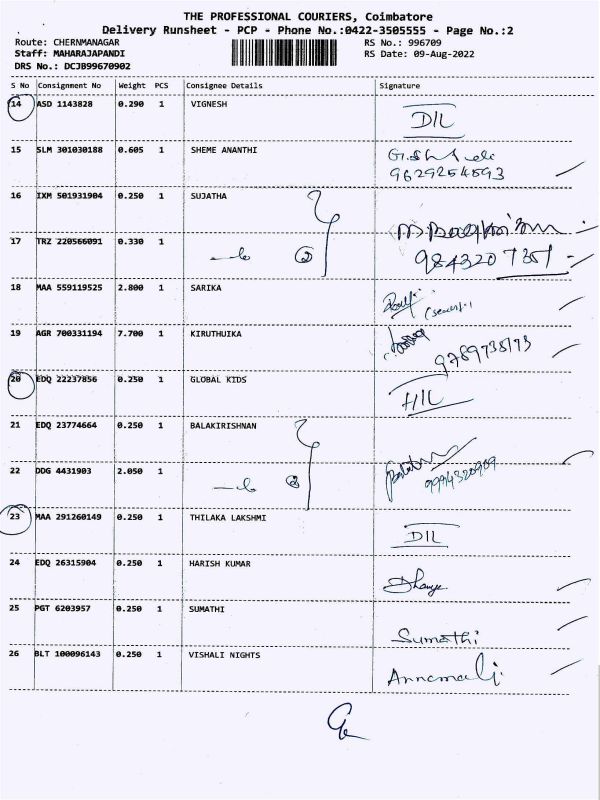 THE PROFESSIONAL COURIERS, Coimbatore
Delivery Runsheet - PCP - Phone No.:0422-3505555 - Page No.:2
Route: CHERNMANAGAR
RS No.: 996709
Staff: MAHARAJAPANDI
RS Date: 09-Aug-2022
DRS No.: DCJB99670902
S No Consignment No Weight PCS Consignee Details Signature
14 ASD 1143828 0.290 1 VIGNESH D/L
15 SLM 301030188 0.605 1 SHEME ANANTHI
9629254593
16 IXM 501931904 0.250 1 SUJATHA
17 TRZ 220566091 0.330 1
9843207351
18 MAA 559119525 2.800 1 SARIKA
19 AGR 700331194 7.700 1 KIRUTHUIKA
20 EDQ 22237856 0.250 1 GLOBAL KIDS
21 EDQ 23774664 0.250 1 BALAKIRISHNAN
22 DDG 4431903 2.050 1
9994320909
23 MAA 291260149 0.250 1 THILAKA LAKSHMI D/L
24 EDQ 26315904 0.250 1 HARISH KUMAR
25 PGT 6203957 0.250 1 SUMATHI
Sumathi
26 BLT 100096143 0.250 1 VISHALI NIGHTS
Annamalai